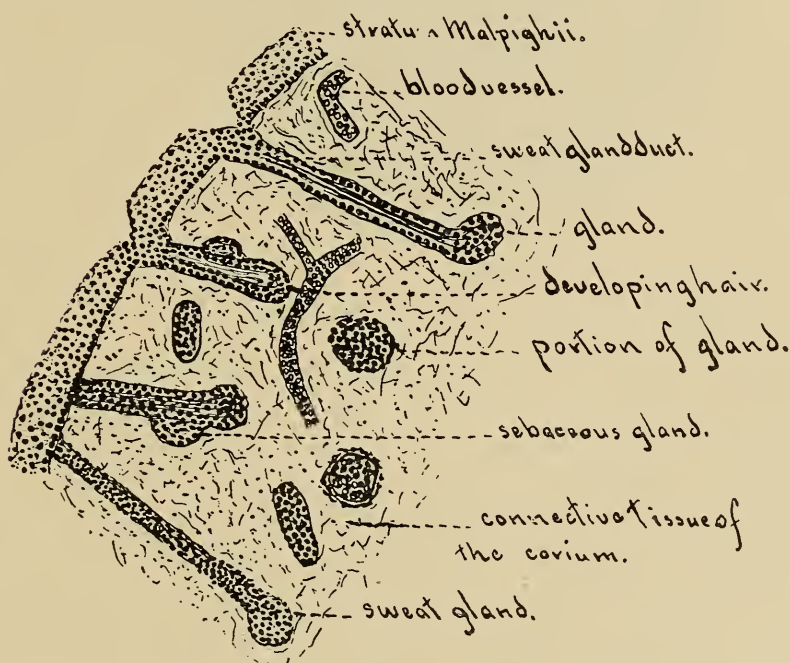 stratu m Malpighii.
bloodvessel.
sweatglandduct.
gland.
developinghair.
portion of gland.
sebaceous gland.
connectivetissueof
the corium.
sweat gland.